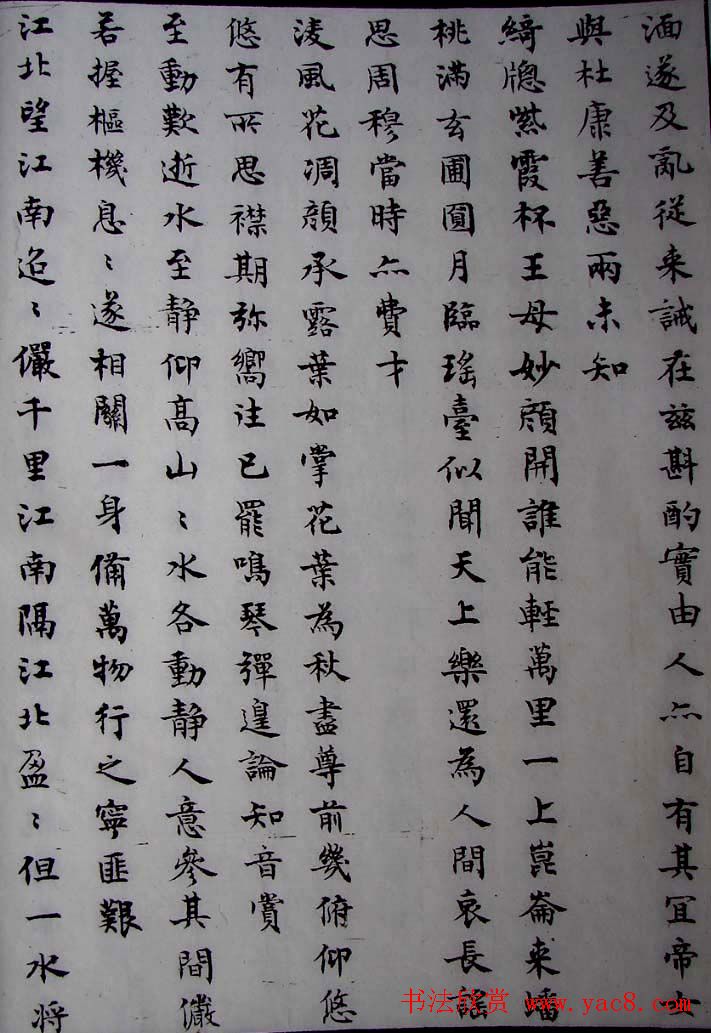 湎遂及亂從来誡在兹斟酌實由人亦自有其冝帝女
與杜康善惡兩未知
綺牕紫霞杯王母妙顔開誰能輕萬里一上崑崙来墦
桃滿玄圃圓月臨瑤臺似聞天上樂還為人間哀長謠
思周穆當時亦費才
淩風花凋顔承露葉如掌花葉為秋盡尊前幾俯仰悠
悠有所思襟期弥嚮注已罷鳴琴彈遑論知音賞
至動歎逝水至静仰髙山〻水各動静人意參其間儼
若握樞機息〻遂相關一身備萬物行之寧匪艱
江北望江南迢〻儼千里江南隔江北盈〻但一水将
书法欣赏 www.yac8.com